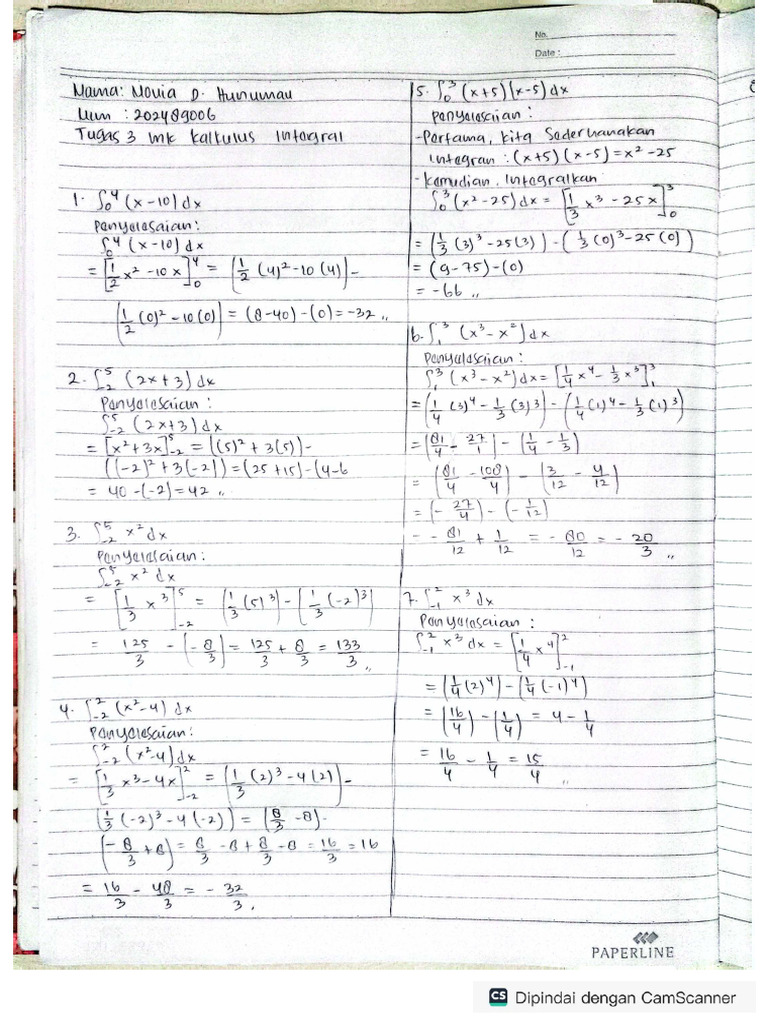 No.
Date :
Nama: Novia D. Hunumau
Nim : 202489006
Tugas 3 mk Kalkulus Integral
1. ∫₀⁴ (x-10) dx
Penyelesaian:
∫₀⁴ (x-10) dx
= [1/2 x² - 10 x]₀⁴ = (1/2 (4)² - 10 (4)) -
(1/2 (0)² - 10(0)) = (8-40) - (0) = -32 ,,
2. ∫₋₂⁵ (2x+3) dx
Penyelesaian :
∫₋₂⁵ (2x+3) dx
= [x² + 3x]₋₂⁵ = ((5)² + 3(5)) -
((-2)² + 3(-2)) = (25 + 15) - (4-6
= 40 - (-2) = 42 ,,
3. ∫₋₂⁵ x² dx
Penyelesaian :
∫₋₂⁵ x² dx
= [1/3 x³]₋₂⁵ = (1/3 (5)³) - (1/3 (-2)³)
= 125/3 - (-8/3) = 125/3 + 8/3 = 133/3 ,,
4. ∫₋₂² (x²-4) dx
Penyelesaian :
∫₋₂² (x²-4) dx
= [1/3 x³ - 4x]₋₂² = (1/3 (2)³ - 4(2)) -
(1/3 (-2)³ - 4(-2)) = (8/3 - 8) -
(-8/3 + 8) = 8/3 - 8 + 8/3 - 8 = 16/3 = 16
= 16/3 - 48/3 = - 32/3 .
5. ∫₀³ (x+5)(x-5) dx
Penyelesaian :
- Pertama, kita Sederhanakan
Integran : (x+5) (x-5) = x² - 25
- Kemudian, Integralkan
∫₀³ (x²-25) dx = [1/3 x³ - 25 x]₀³
= (1/3 (3)³ - 25(3)) - (1/3 (0)³ - 25 (0))
= (9-75) - (0)
= -66 ,,
6. ∫₁³ (x³ - x²) dx
Penyelesaian :
∫₁³ (x³ - x²) dx = [1/4 x⁴ - 1/3 x³]₁³
= (1/4 (3)⁴ - 1/3 (3)³) - (1/4 (1)⁴ - 1/3 (1)³)
= (81/4 - 27/1) - (1/4 - 1/3)
= (81/4 - 108/4) - (3/12 - 4/12)
= (- 27/4) - (- 1/12)
= - 81/12 + 1/12 = - 80/12 = - 20/3 ,,
7. ∫₋₁² x³ dx
Penyelesaian :
∫₋₁² x³ dx = [1/4 x⁴]₋₁²
= (1/4 (2)⁴) - (1/4 (-1)⁴)
= (16/4) - (1/4) = 4 - 1/4
= 16/4 - 1/4 = 15/4 ,,
PAPERLINE
CS Dipindai dengan CamScanner